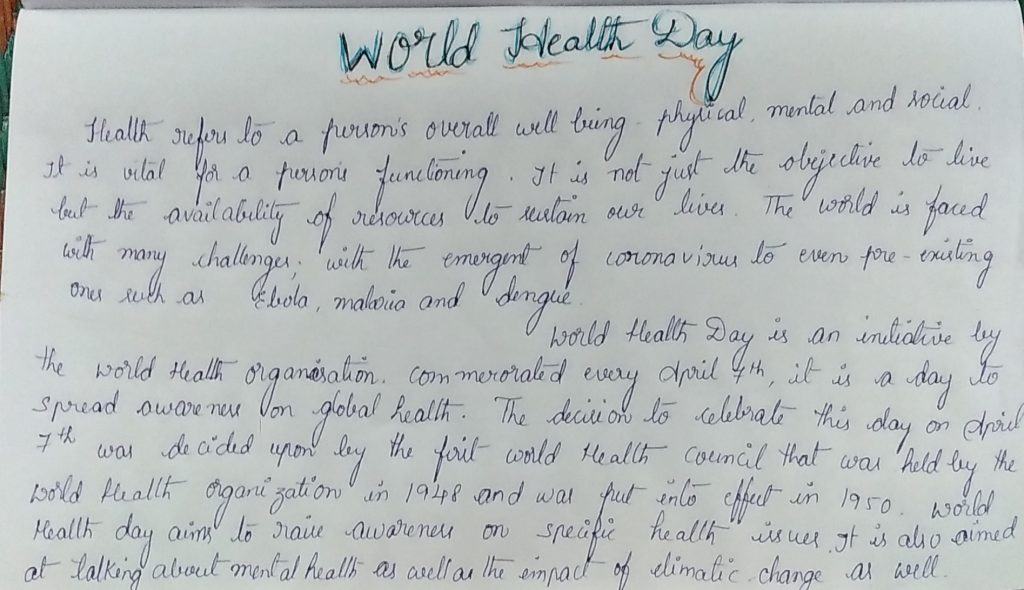 World Health Day
Health refers to a person's overall well being - physical, mental and social.
It is vital for a person's functioning. It is not just the objective to live
but the availability of resources to sustain our lives. The world is faced
with many challenges; with the emergent of coronavirus to even pre-existing
ones such as Ebola, malaria and dengue.
World Health Day is an initiative by
the World Health organisation. commerorated every April 7th, it is a day to
spread awareness on global health. The decision to celebrate this day on April
7th was decided upon by the first world Health council that was held by the
World Health organization in 1948 and was put into effect in 1950. World
Health day aims to raise awareness on specific health issues. It is also aimed
at talking about mental health as well as the impact of climatic change as well.